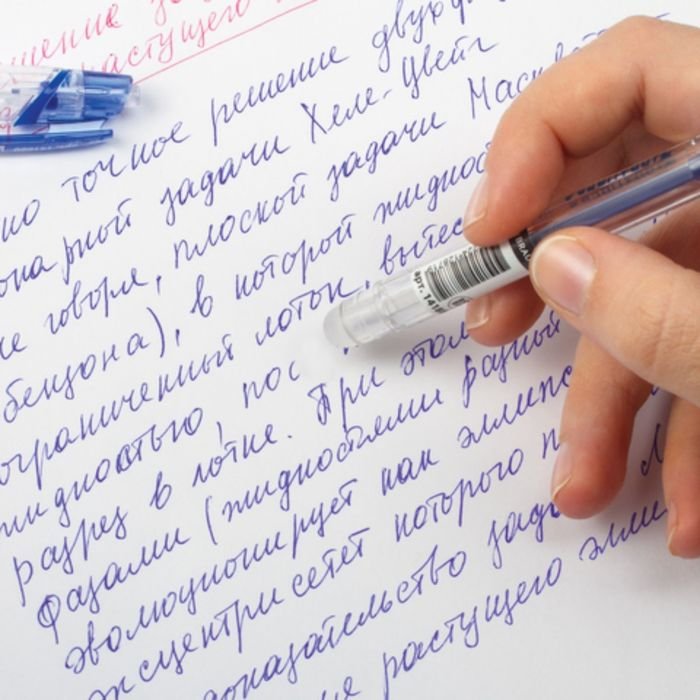 шение за
растущего
но точное решение двухф
онарной задачи Хеле-Цветг
ие говоря, плоской задачи Маск
бензона), в которой жиднос
ограниченный лоток, вытес
жидкостью, пос
разрез в лотке. При этом
Фазами (жидностями разный
эволюционирует как эллипс
эксцентриситет которого п
доказательство зад
растущего элли
арт. 141
BRAU